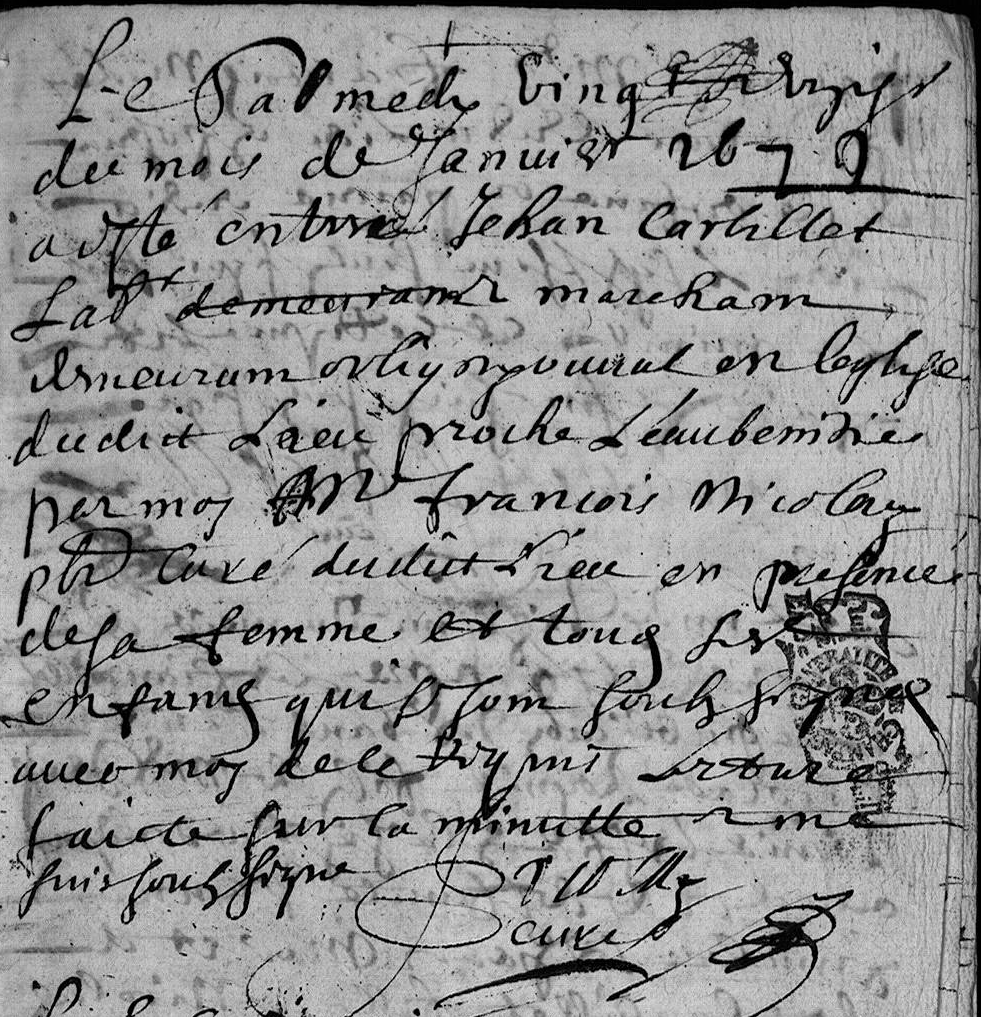 Le Sabmedy vingt
du mois de Janvier 1679
a esté enterré Jehan Carlillet
Labr demeurant marcham
demeuram en leglise
dudict Lieu proche Leaubenitie
par moy Mre francois Nicolay
pbr Curé dudict Lieu en presence
de sa femme et tous ses
enfans qui se som soubz signes
avec moy de ce requis Lecture
faicte sur la minutte me
suis soubz signe
curé
GENERALITE DE